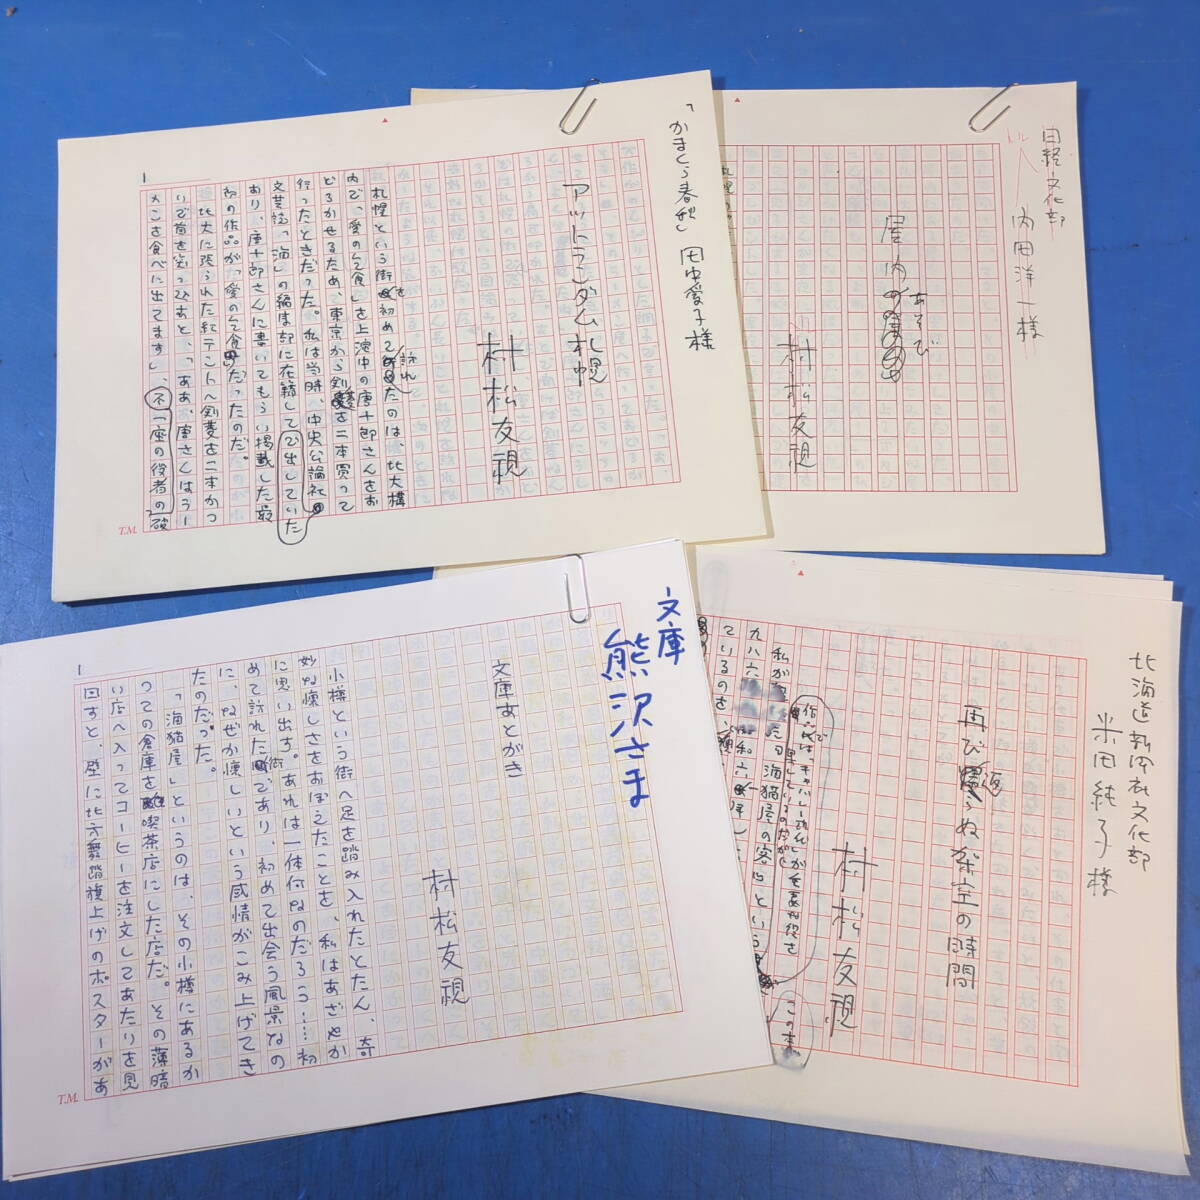 「かまくら春秋」 田中愛子様
アットランダム札幌
村松友視
札幌という街を初めて訪れたのは、北大構
内で、「愛の乞食」を上演中の唐十郎さんをお
どろかせるため、東京から剣菱を二本買って
行ったときだった。私は当時、中央公論社の
文芸誌「海」の編集部に在籍して
び出していた
あり、唐十郎さんに書いてもらい掲載した最
初の作品が「愛の乞食」だったのだ。
北大に張られた紅テントへ剣菱を二本かつ
いで首を突っ込むと、「ああ、唐さんはうー
めこを食べに出てます」、
不
一座の役者の
1
T.M.
日経文化部
内田洋一様
屋内
あそび
村松友視
文庫
熊沢さま
文庫あとがき
村松友視
小樽という街へ足を踏み入れたとたん、奇
妙な懐しさをおぼえたことを、私はあざやか
に思い出す。あれは一体何なのだろう……初
めて訪れた街であり、初めて出会う風景なの
に、なぜか懐しいという感情がこみ上げてき
たのだった。
「海猫屋」というのは、その小樽にあるか
つての倉庫を喫茶店にした店だ。その薄暗
い店へ入ってコーヒーを注文してあたりを見
回すと、壁に北方舞踏旗上げのポスターがあ
1
T.M.
北海道新聞社文化部
米田純子様
再び
返
らぬ架空の時間
村松友視
私が
海猫屋の客」という
ているのを、
この本